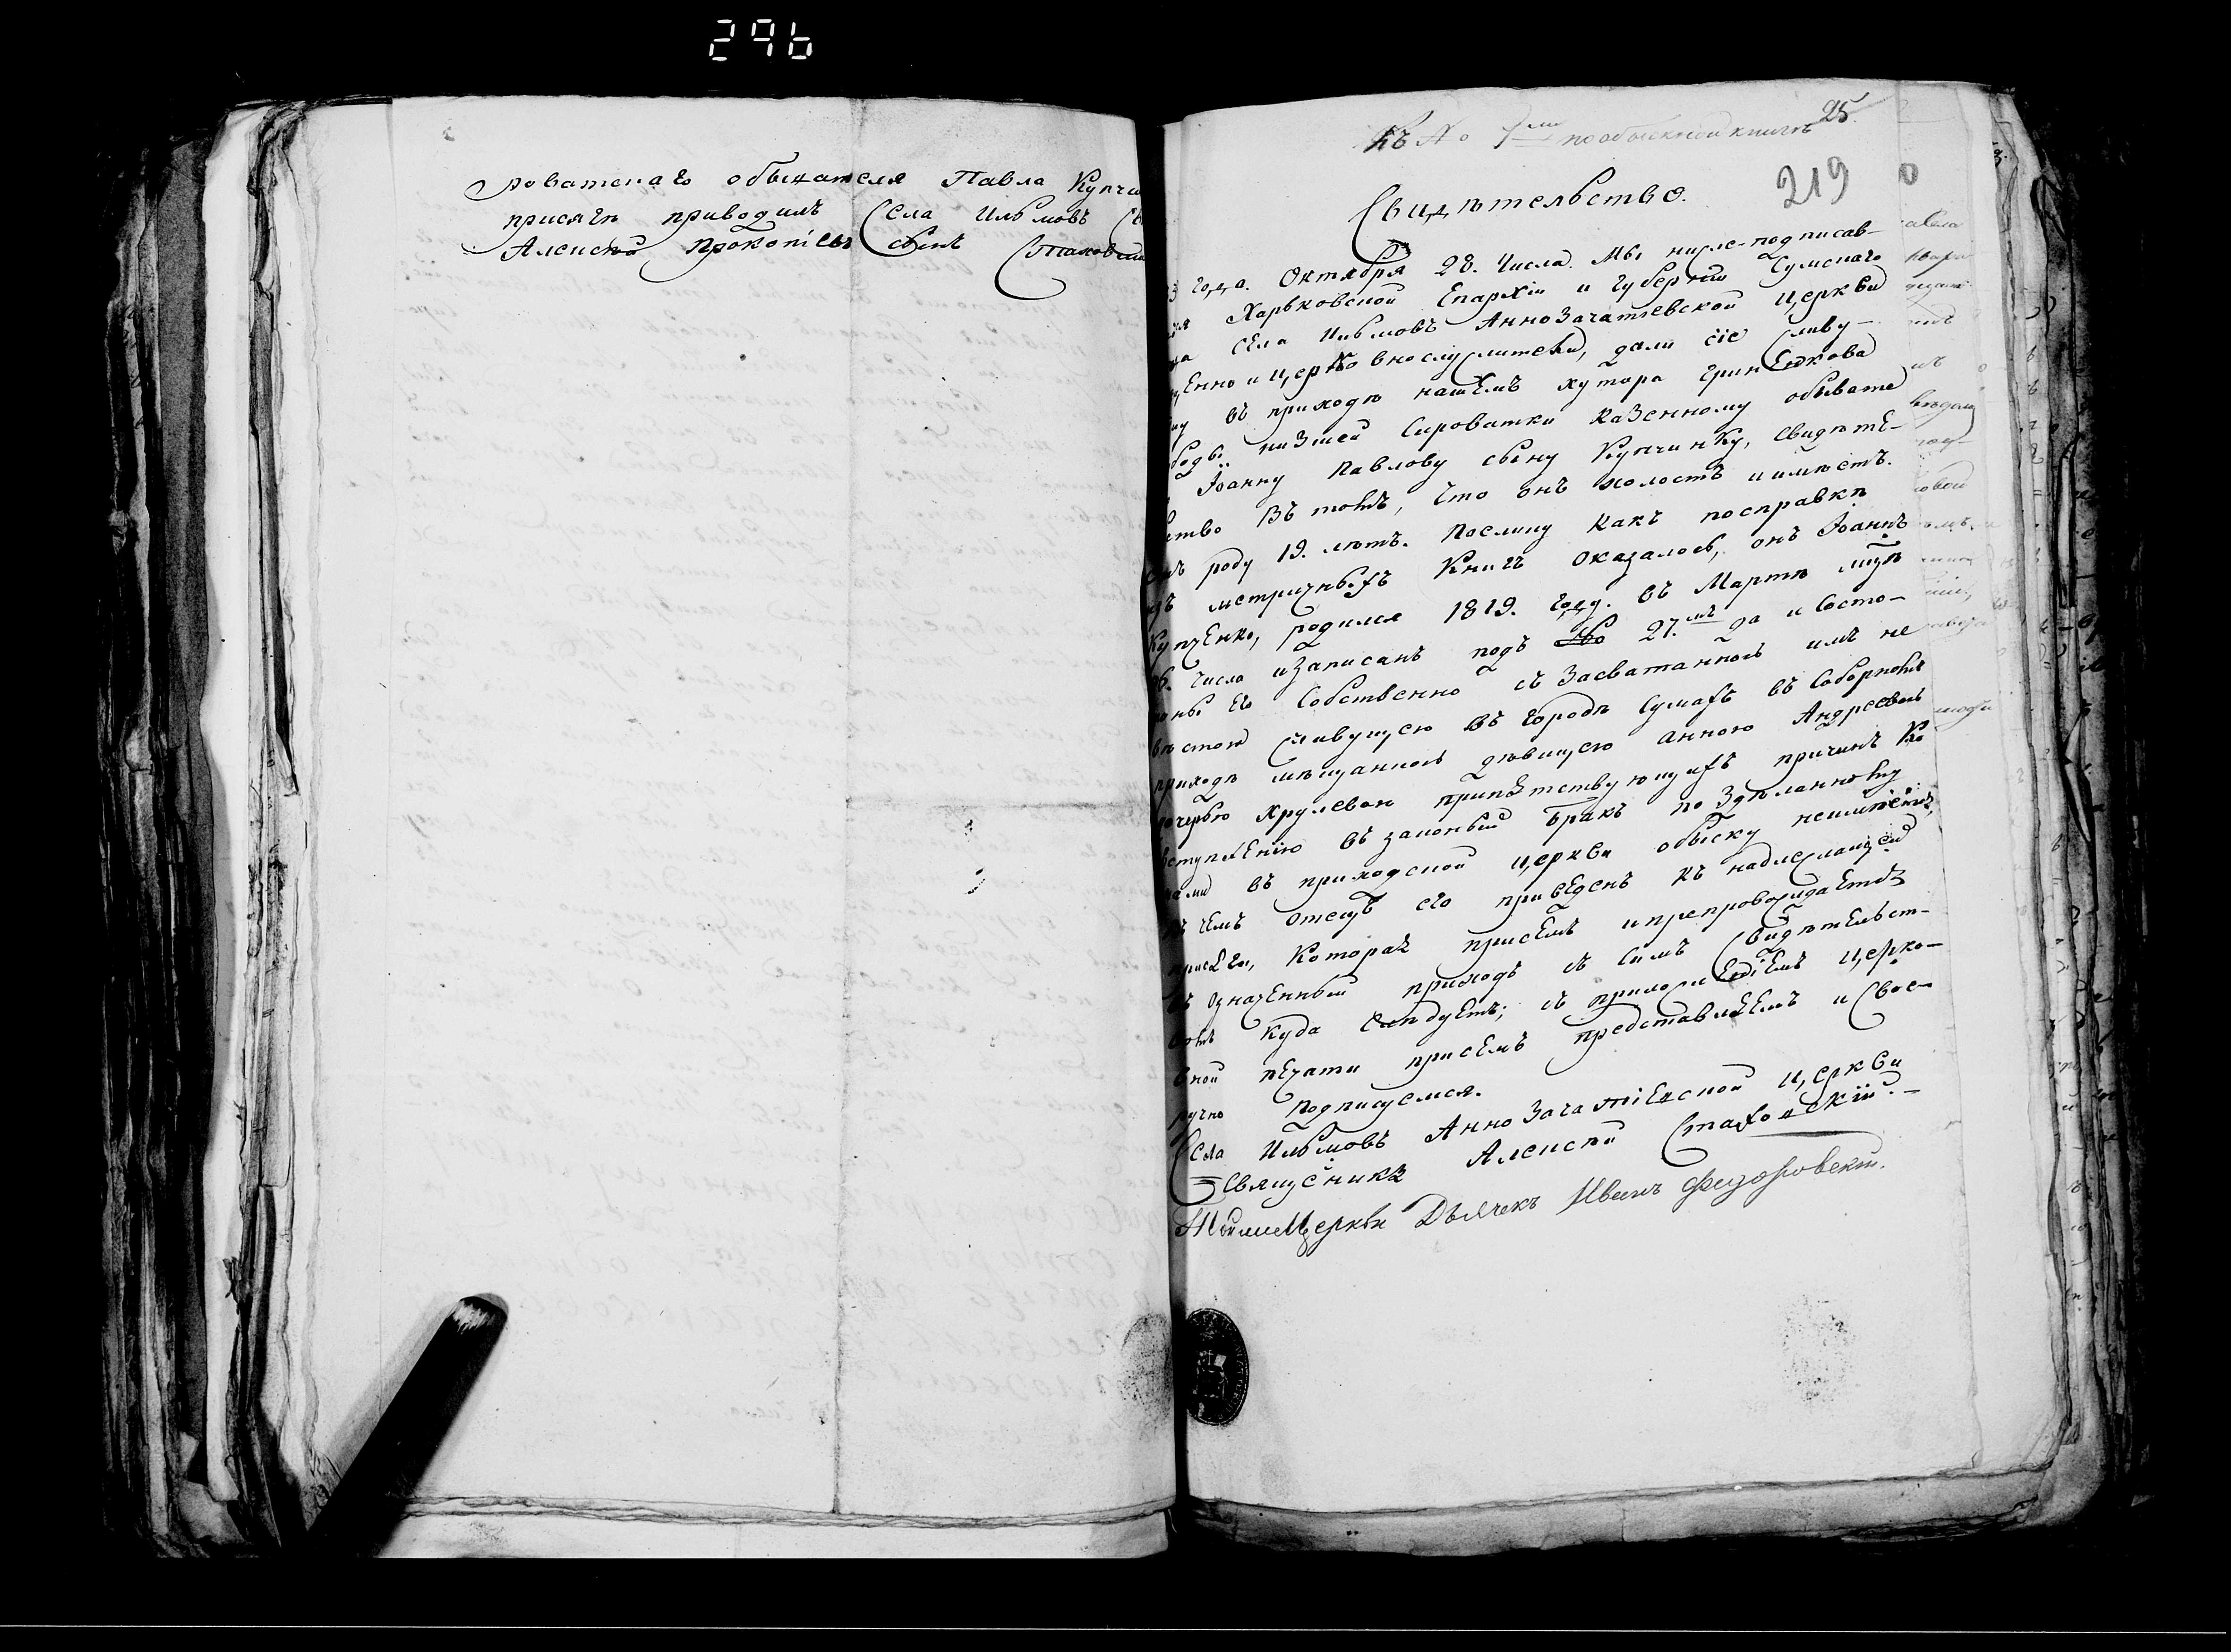 296
роватскаго обывателя Павла Купчи
присягѣ приводилъ Села Ильмовъ
Алексѣй Прокопіевъ сынъ Стаховскій
25.
Къ № 7му по обыскной книгѣ
219
Свидѣтельство.
года. Октября 28. Числа. Мы ниже-подписав-
Харьковской Епархіи и Губерніи Сумскаго
села Ильмовъ АнноЗачатіевской церкви
енно и церковнослужители, дали сіе живу-
въ приходѣ нашемъ хутора Гриненкова
низшей Сироватки казенному обывате
Іоанну Павлову сыну Купчинку, свидѣте-
ство въ томъ, что онъ холостъ и имѣетъ
роду 19. лѣтъ. Послику какъ посправкѣ
метричныхъ Книгъ оказалось, онъ Іоаннъ
Купченко, родился 1819. году. въ Мартѣ мцѣ
Числа изаписанъ подъ № 27.мъ да и Состо-
его Собственно съ Засватанною имъ не
вѣстою живущею въ городѣ Сумахъ въ Соборномъ
приходѣ мѣщанною дѣвицею Анною Андреевою
дочерью Хрулевою припятствующихъ причинъ Ко
вступленію въ законный бракъ по Здѣланному
нами въ приходской церкви обыску неимѣетъ,
въ чемъ отецъ его приведенъ къ надлежащей
присягѣ, Которая присемъ ипрепровождается
въ означенный приходъ съ Симъ Свидѣтельст-
вомъ куда Слѣдуетъ; съ приложеніемъ церко-
вной печати присемъ представляемъ и Свое-
ручно подписуемся.
Села Ильмовъ АнноЗачатіевской церкви
Священникъ Алексѣй Стаховскій.-
Тойже Церкви Дьячекъ Иванъ Федоровскій.